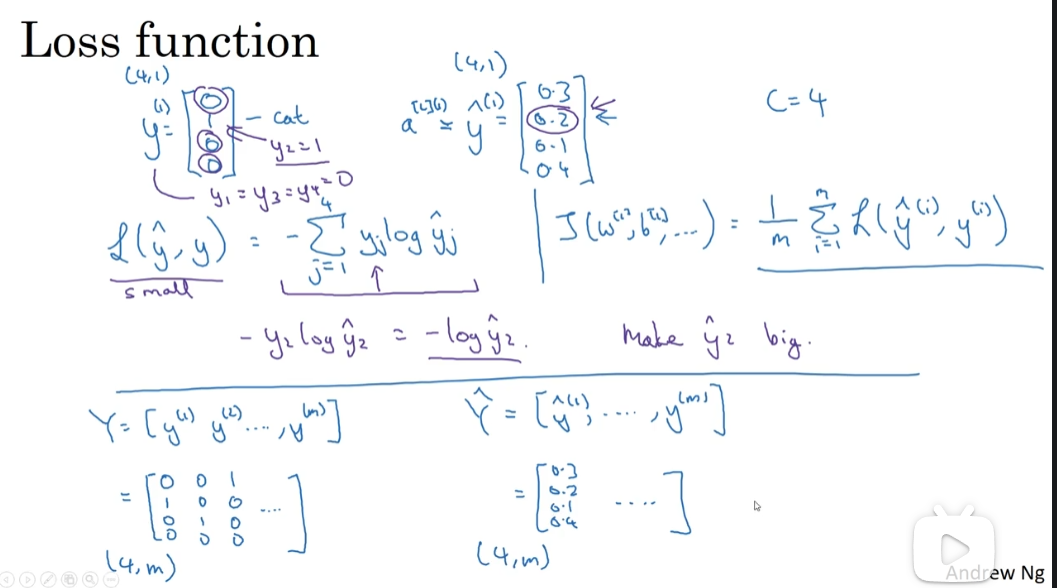 Loss function
(4,1)
y⁽ⁱ⁾ = [0 1 0 0] - cat
y₂=1
y₁ = y₃ = y₄ = 0
(4,1)
a^[L](i) = ŷ⁽ⁱ⁾ = [0.3 0.2 0.1 0.4]
C = 4
ℒ(ŷ, y) = - Σ_{j=1}^{4} y_j log ŷ_j
small
J(w^[1], b^[1], ...) = 1/m Σ_{i=1}^{m} ℒ(ŷ⁽ⁱ⁾, y⁽ⁱ⁾)
- y₂ log ŷ₂ = - log ŷ₂. Make ŷ₂ big.
Y = [y⁽¹⁾ y⁽²⁾ ...., y⁽ᵐ⁾]
= [0 0 1
1 0 0 ....
0 1 0
0 0 0]
(4,m)
Ŷ = [ŷ⁽¹⁾, ...., y⁽ᵐ⁾]
= [0.3
0.2 ....
0.1
0.4]
(4,m)
Andrew Ng